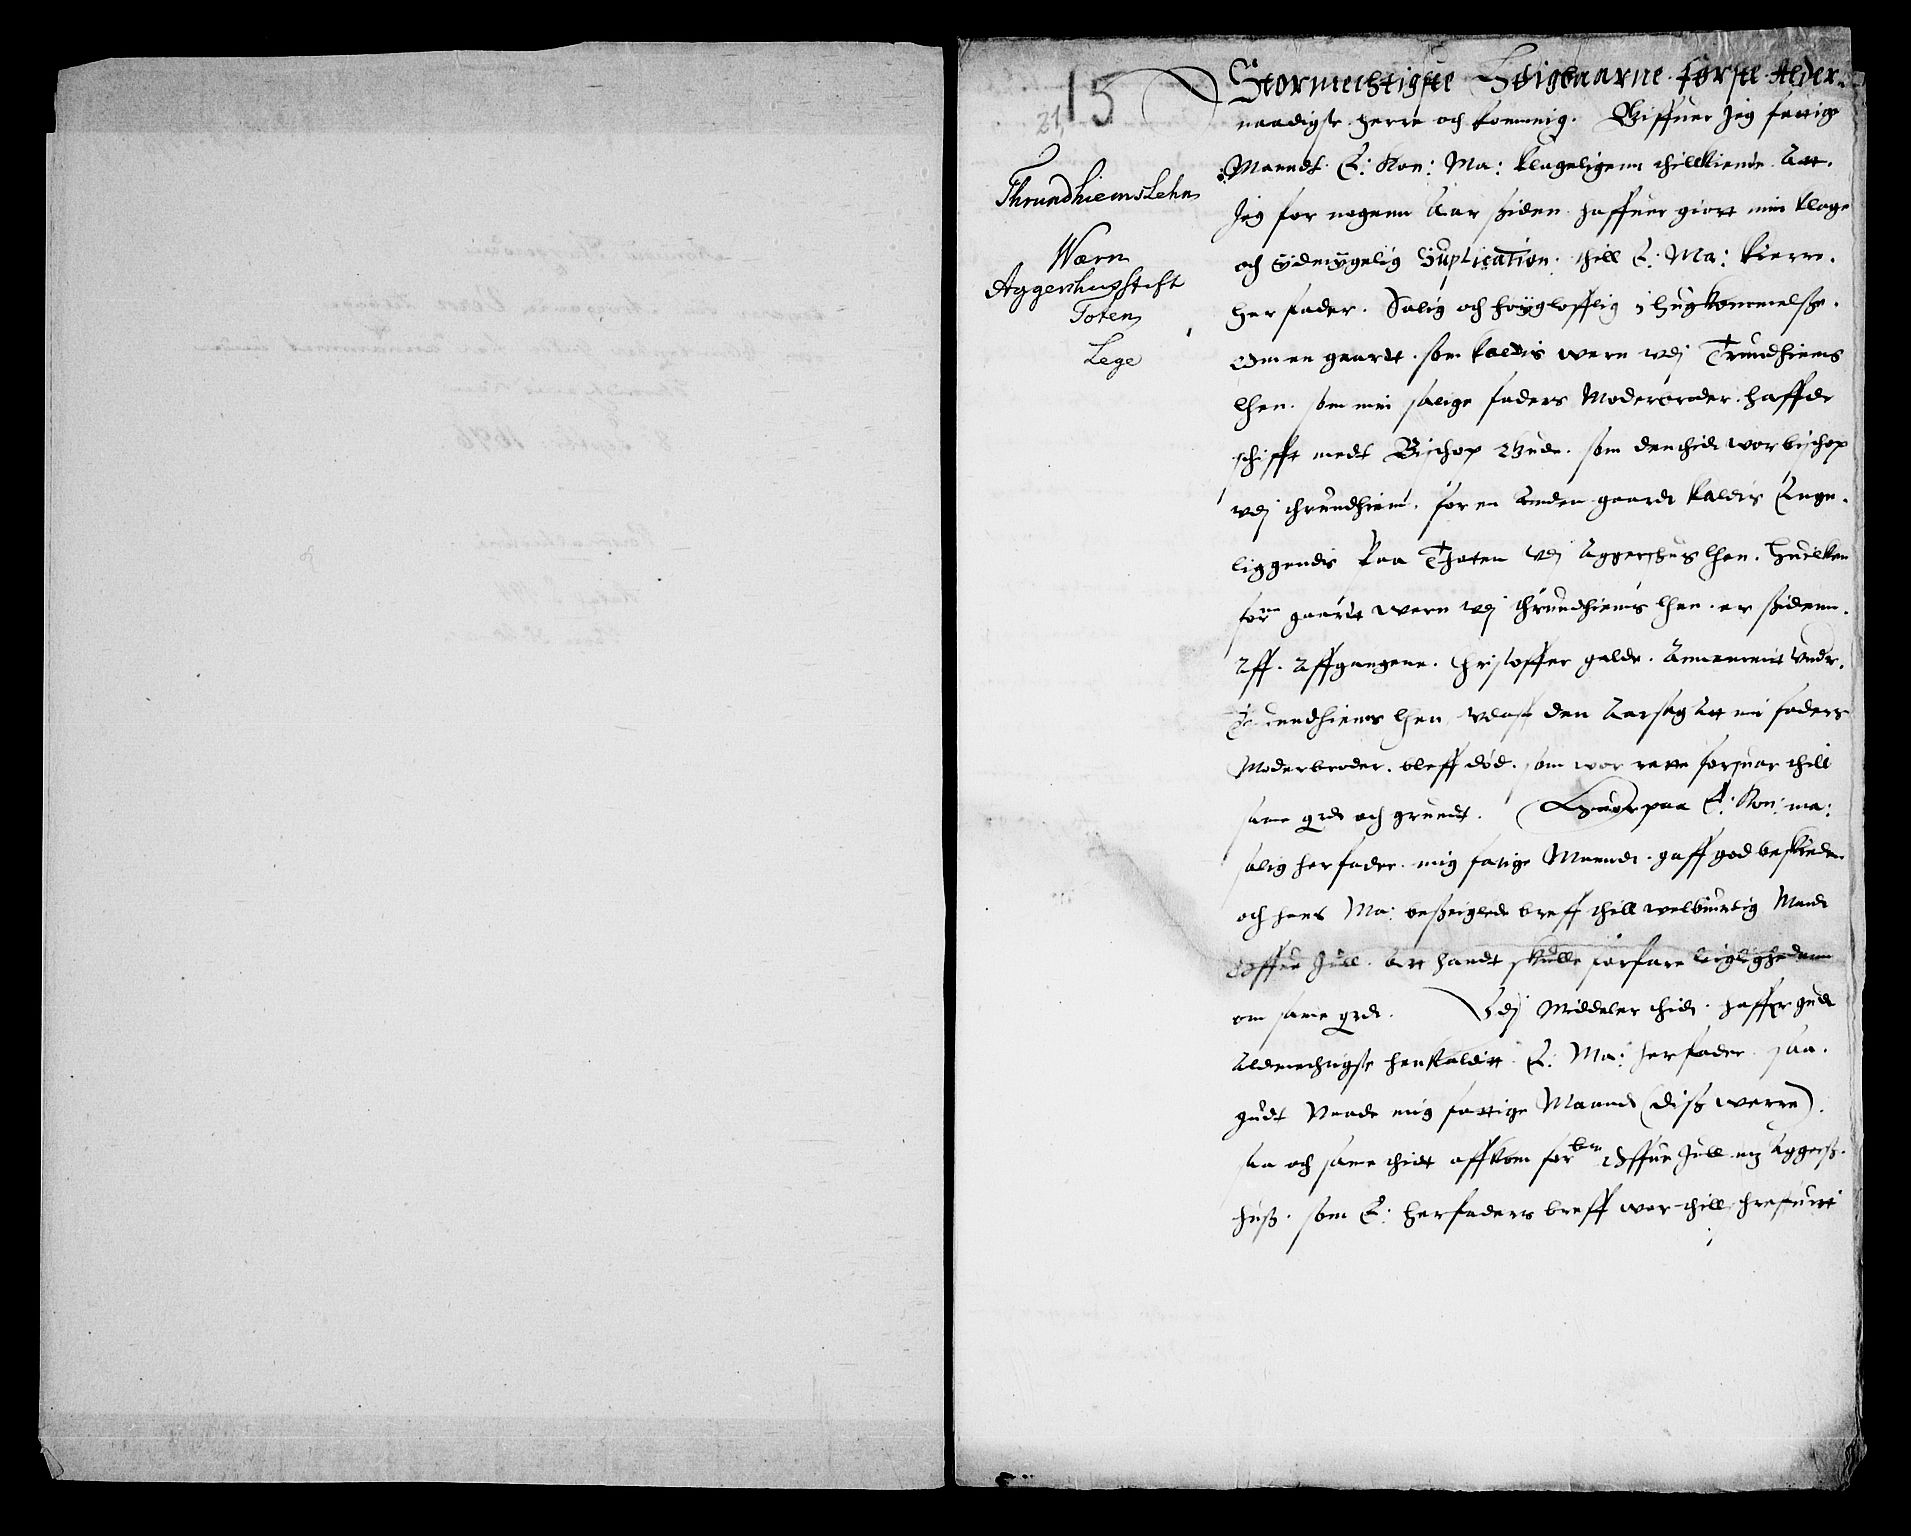 15
21,
Thrundhiems Lehn
Wærn
Aggershuß Stift
Toten
Lege
Stormechtigste Høigbaarne første Alder-
naadigste herre och konning. Giffuer Jeg fattige
Manndt E: Kon: Ma: klageligenn thillkiende. Att.
Jeg for nogenn Aar siden haffuer giort min klage
och ydmygelig Suplication thill E: Ma: kierre.
Her fader. Salig och høyglofflig i hugkommelsse.
Om en gaardt som kaldis wern vdj Trundhiems
lhen. som min salige faders Moderbroder haffde
schifft medt Bischop som den thidt wor bischop
vdj thrundhiem. for en anden gaardt kaldis
liggendis paa Thoten vdj Aggershus lhen. Huilken
forne gaardt wern vdj thrundhiems lhen er siden.
Aff. Affgangene. Christoffer galde. Annammit vnder.
Trundhiems lhen vdaff den Aarsag Att min faders
Moderbroder bleff død. som wor rette forsuar thill
same grdt och grundt. Huorpaa E: Kon: ma:
salig her fader. mig fatige Manndt gaff god beskeden
och hans Ma: beseiglede breff thill welbiurdig Mandt
Offue Jull. Att handt skulle forfare leiglighedenn
om same grdt. Vdj Middeler thidt haffer gudt
Aldmechtigste henkaldit E: Ma: Her fader saa.
gudt Naade mig fattige Manndt (diss werre).
saa och same thidt affkom forbne Offue Jull mz Aggerss-
huss. som E: Herfaders breff wor thill